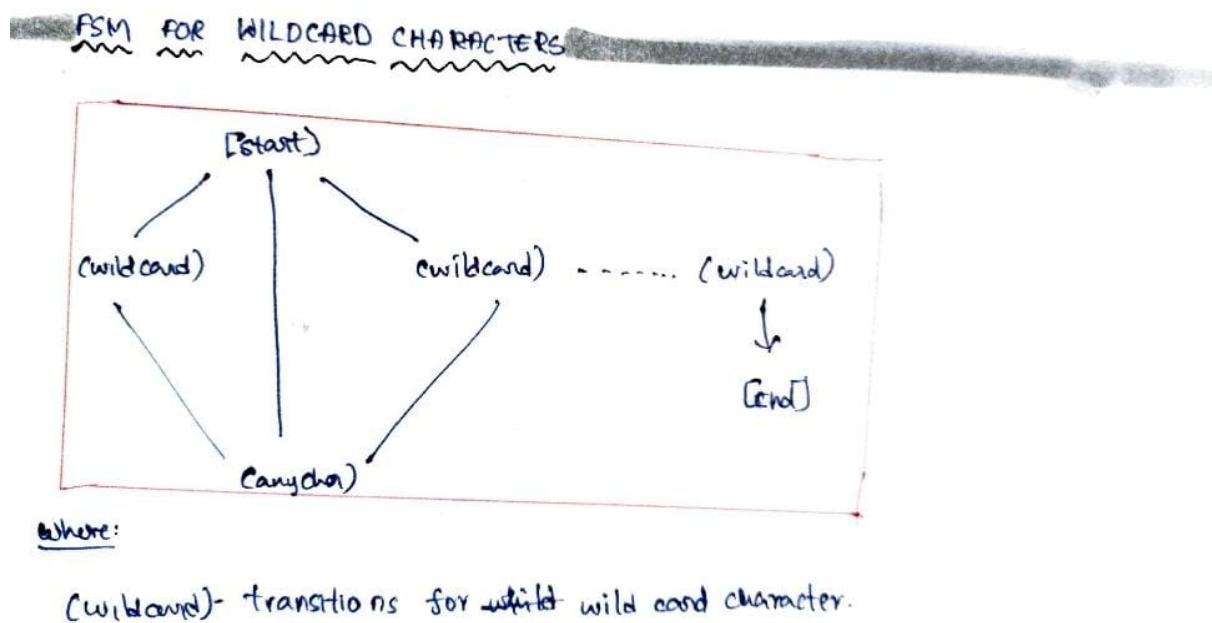 FSM FOR WILDCARD CHARACTERS
[start]
(wildcard) (wildcard) ....... (wildcard)
[End]
(anychar)
where:
(wildcard)- transitions for wild card character.